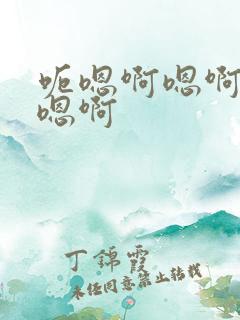 呃嗯啊嗯啊
嗯啊
丁錦霞
未经同意禁止转载